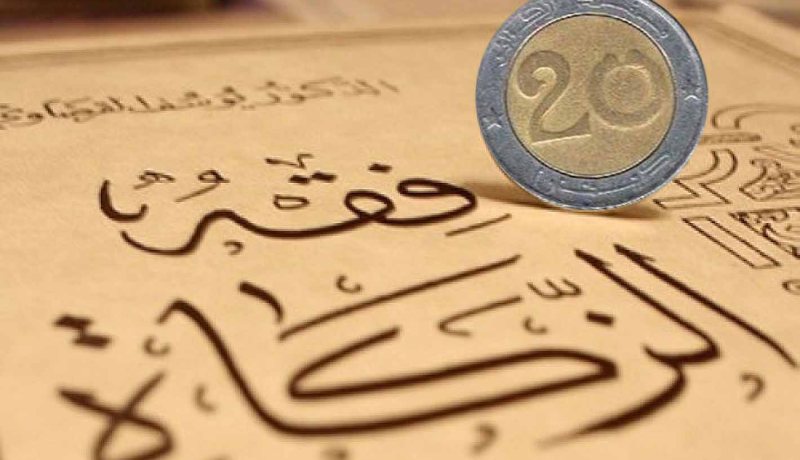 20
الدكتور يوسف القرضاوي
فِقْهُ
الزّكاة